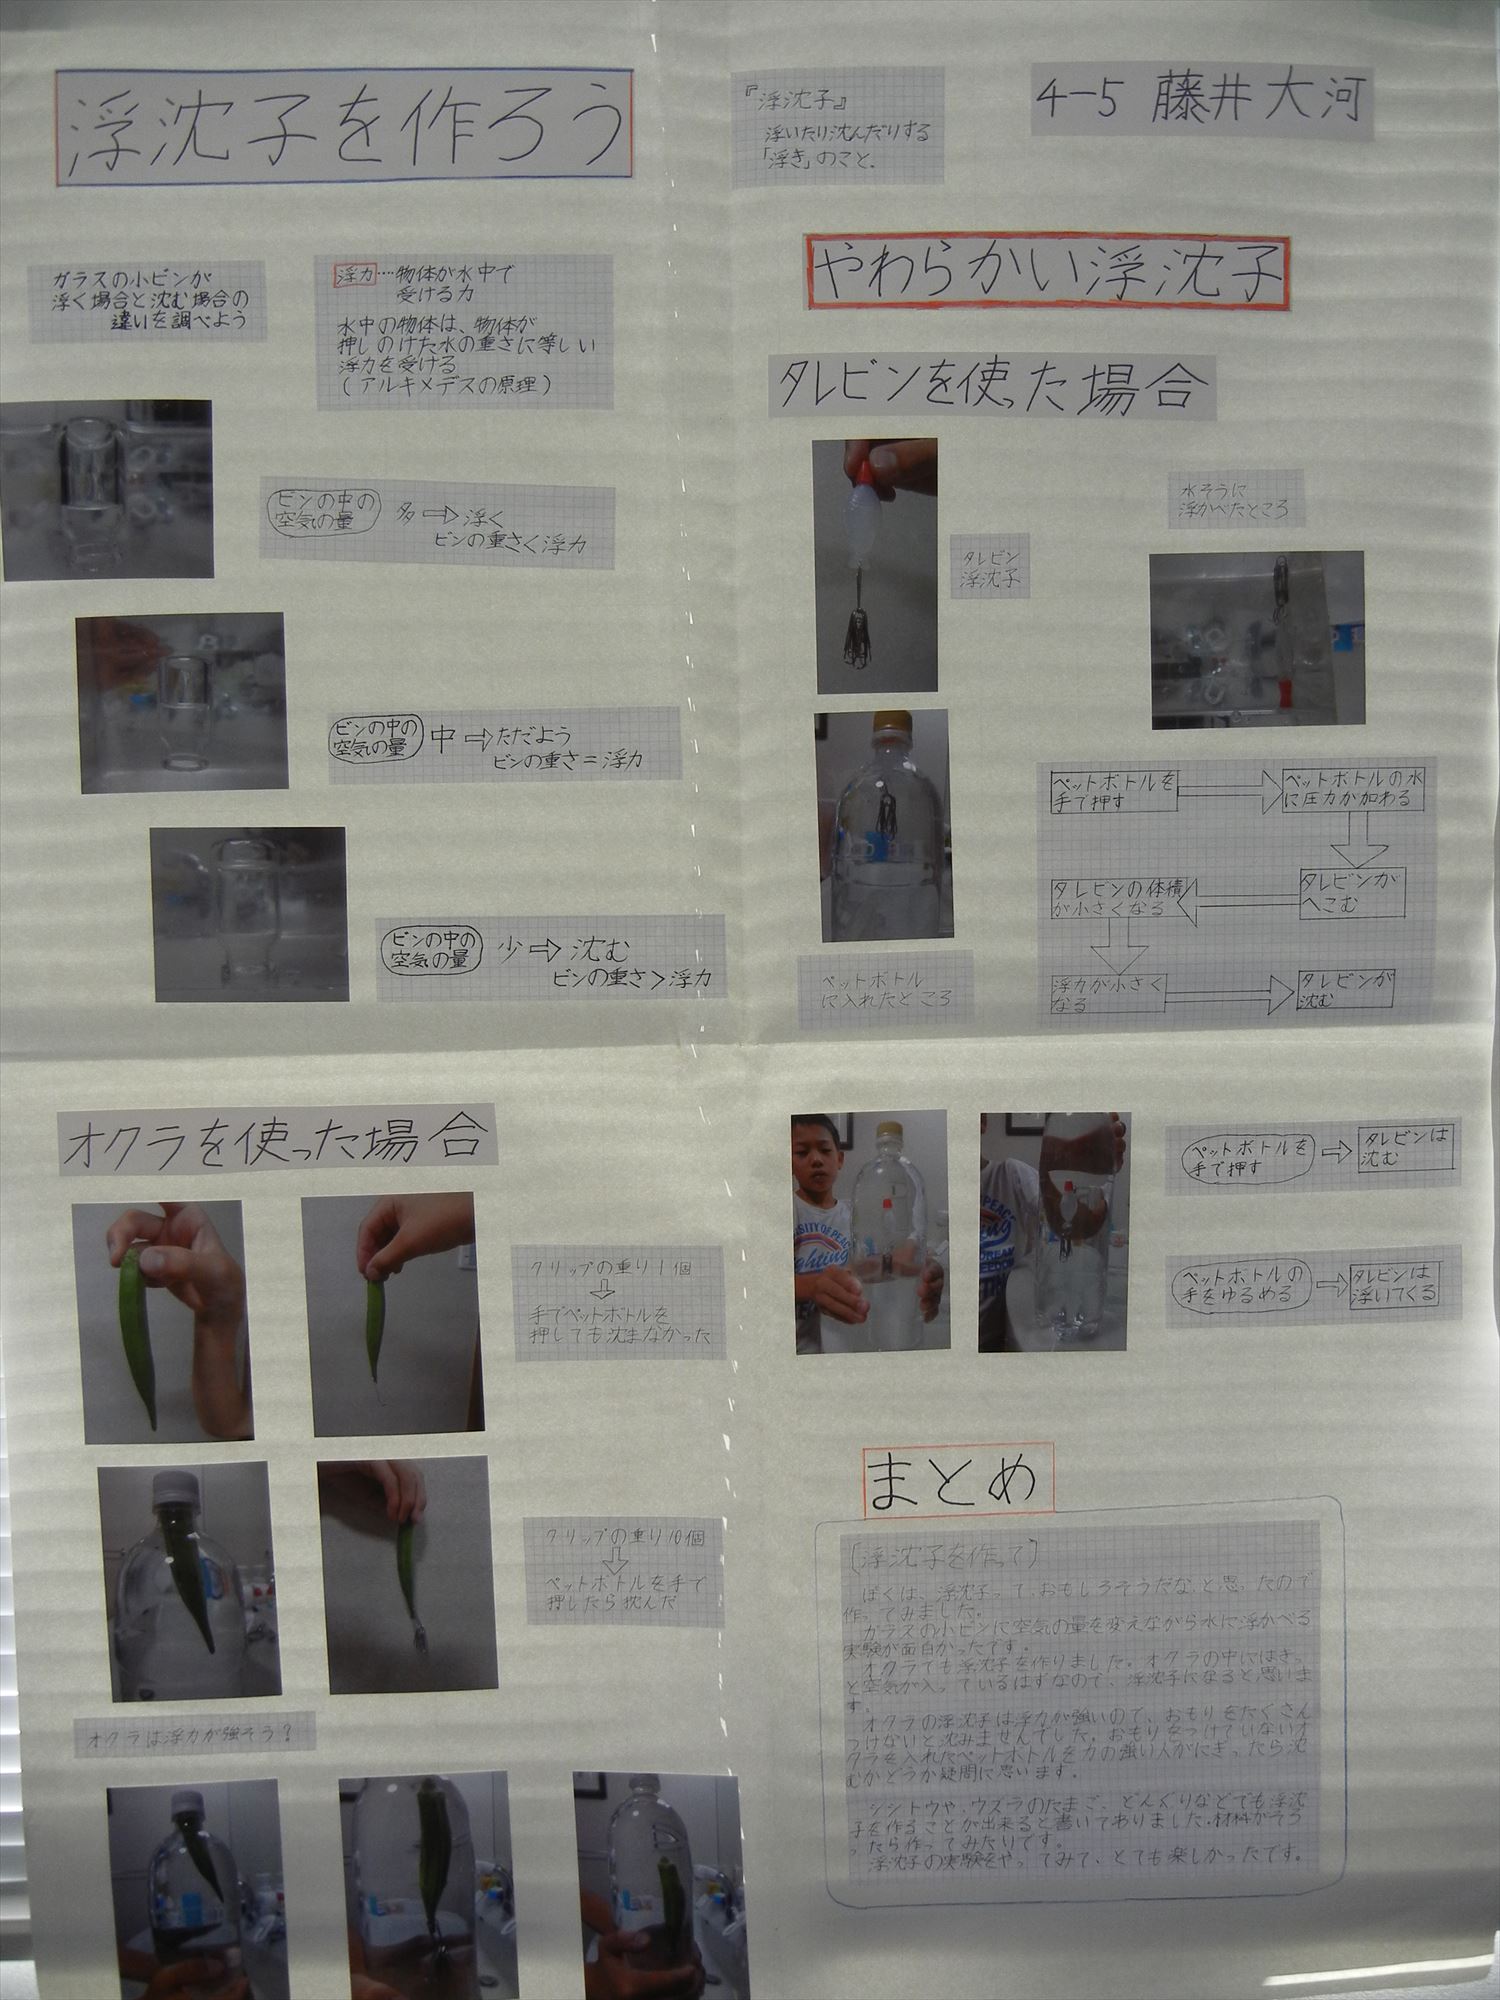 浮沈子を作ろう
『浮沈子』
浮いたり沈んだりする
「浮き」のこと.
4-5 藤井大河
ガラスの小ビンが
浮く場合と沈む場合の
違いを調べよう
浮力…物体が水中で
受ける力
水中の物体は、物体が
押しのけた水の重さに等しい
浮力を受ける
(アルキメデスの原理)
ビンの中の
空気の量
多⇨浮く
ビンの重さ<浮力
ビンの中の
空気の量
中⇨ただよう
ビンの重さ=浮力
ビンの中の
空気の量
少⇨沈む
ビンの重さ>浮力
やわらかい浮沈子
タレビンを使った場合
タレビン
浮沈子
水そうに
浮かべたところ
ペットボトル
に入れたところ
ペットボトルを
手で押す
ペットボトルの水
に圧力が加わる
タレビンが
へこむ
タレビンの体積
が小さくなる
浮力が小さく
なる
タレビンが
沈む
ペットボトルを
手で押す
タレビンは
沈む
ペットボトルの
手をゆるめる
タレビンは
浮いてくる
オクラを使った場合
クリップの重り1個
⇩
手でペットボトルを
押しても沈まなかった
クリップの重り10個
⇩
ペットボトルを手で
押したら沈んだ
オクラは浮力が強そう?
まとめ
〔浮沈子を作って〕
ぼくは、浮沈子って、おもしろそうだな、と思ったので
作ってみました。
ガラスの小ビンに空気の量を変えながら水に浮かべる
実験が面白かったです。
オクラでも浮沈子を作りました。オクラの中にはきっ
と空気が入っているはずなので、浮沈子になると思いま
す。
オクラの浮沈子は浮力が強いので、おもりをたくさん
つけないと沈みませんでした。おもりをつけていないオ
クラを入れたペットボトルを力の強い人がにぎったら沈
むかどうか疑問に思います。
シシトウや、ウズラのたまご、どんぐりなどでも浮沈
子を作ることが出来ると書いてありました。材料がそろ
ったら作ってみたいです。
浮沈子の実験をやってみて、とても楽しかったです。